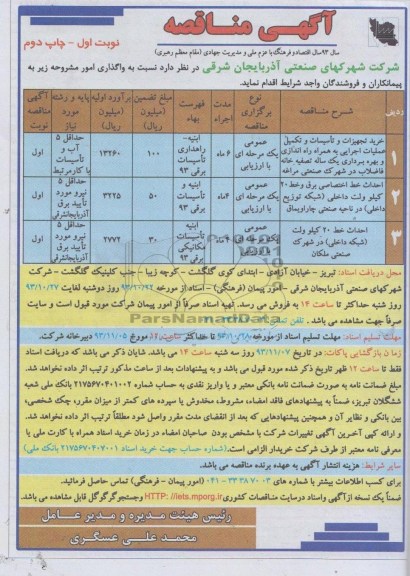 آگهی مناقصه
نوبت اول - چاپ دوم
سال ۹۳ سال اقتصاد و فرهنگ با عزم ملی و مدیریت جهادی (مقام معظم رهبری)
شرکت شهرکهای صنعتی آذربایجان شرقی در نظر دارد نسبت به واگذاری امور مشروحه زیر به
پیمانکاران و فروشندگان واجد شرایط اقدام نماید.
ردیف | شرح مناقصه | نوع برگزاری مناقصه | مدت اجراء | فهرست بهاء | مبلغ تضمین (میلیون ریال) | برآورد اولیه (میلیون ریال) | پایه و رشته مورد نیاز | آگهی مناقصه نوبت
۱ | خرید تجهیزات و تأسیسات و تکمیل عملیات اجرایی به همراه راه اندازی و بهره برداری یک ساله تصفیه خانه فاضلاب در شهرک صنعتی مراغه | عمومی یک مرحله ای با ارزیابی | ۶ ماه | ابنیه- راهداری تأسیسات برقی ۹۳ | ۱۰۰ | ۱۳۲۶۰ | حداقل ۵ آب و تأسیسات با کار مرتبط | اول
۲ | احداث خط اختصاصی برق وخط ۲۰ کیلو ولت داخلی (شبکه توزیع داخلی) در ناحیه صنعتی چاراویماق | عمومی یک مرحله ای با ارزیابی | ۴ ماه | ابنیه و تأسیسات برقی ۹۳ | ۵۰ | ۳۲۲۵ | حداقل ۵ نیرو مورد تأیید برق آذربایجانشرقی | اول
۳ | احداث خط ۲۰ کیلو ولت (شبکه داخلی) در شهرک صنعتی ملکان | عمومی یک مرحله ای با ارزیابی | | ابنیه تأسیسات مکانیکی برقی ۹۳ | ۳۰ | ۲۷۷۲ | حداقل ۵ نیرو مورد تأیید برق آذربایجانشرقی | اول
محل دریافت اسناد: تبریز - خیابان آزادی - ابتدای کوی گلگشت - کوچه زیبا - جنب کلینیک گلگشت - شرکت
شهرکهای صنعتی آذربایجان شرقی - امور پیمان (فرهنگی) - اسناد از مورخه روز دوشنبه لغایت ۹۳/۱۰/۲۷
روز شنبه حداکثر تا ساعت ۱۴ به فروش می رسد. تهیه اسناد صرفاً از امور پیمان شرکت مورد قبول است و سایت
صرفاً جهت مشاهده می باشد.
ParsNamadData
مهلت تسلیم اسناد: مهلت تسلیم اسناد از مورخه ۹۳/۱۰/۲۸ تا حداکثر ساعت ۱۴ مورخ ۹۳/۱۱/۰۵ دبیرخانه شرکت.
زمان بازگشایی پاکات: در تاریخ ۹۳/۱۱/۰۷ روز سه شنبه ساعت ۱۴ می باشد. شایان ذکر می باشد که دریافت اسناد
فقط تا ساعت ۱۲ ظهر تاریخ ذکر شده مورد قبول می باشد و به پیشنهادات بعد از ساعت مذکور ترتیب اثر داده نخواهد شد.
مبلغ ضمانت نامه به صورت ضمانت نامه بانکی معتبر و یا واریز نقدی به حساب شماره ۲۱۷۵۶۷۰۴۰۱۰۰۲ بانک ملی شعبه
ششگلان تبریز، ضمناً به پیشنهادهای فاقد امضاء، مشروط، مخدوش یا سپرده های کمتر از میزان مقرر، چک شخصی،
بین بانکی و نظایر آن و همچنین پیشنهادهایی که بعد از انقضای مدت مقرر واصل شود مطلقاً ترتیب اثر داده نخواهد شد.
و ارائه کپی آخرین آگهی تغییرات شرکت با مشخص بودن صاحبان امضاء در زمان خرید اسناد همراه با کارت ملی یا
معرفی نامه معتبر از طرف شرکت خریدار الزامی است. (شماره حساب جهت خرید اسناد ۲۱۷۵۶۷۰۴۰۷۰۰۱ بانک ملی)
سایر شرایط: هزینه انتشار آگهی به عهده برنده مناقصه می باشد.
برای کسب اطلاعات بیشتر با شماره های ۰۳ ۷۰ ۳۸ ۳۳ - ۰۴۱ (امور پیمان - فرهنگی) تماس حاصل فرمائید.
ضمناً یک نسخه از آگهی واسناد درسایت مناقصات کشوری HTTP: //iets.mporg.ir وجستجوگر گوگل قابل مشاهده می باشد.
رئیس هیئت مدیره و مدیر عامل
محمد علی عسگری